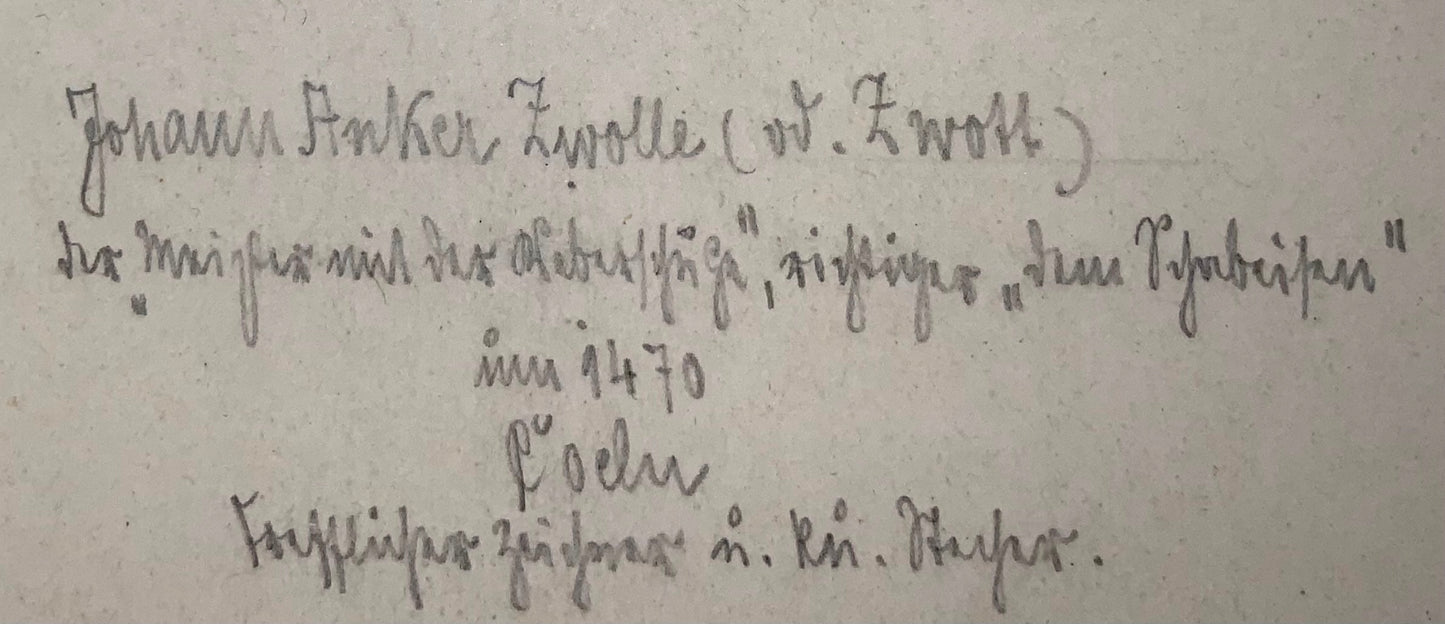 Johann Anker Zwolle (od. Zwott)
der „Meister mit der Weberschütze", richtiger „dem Schabeisen"
um 1470
Coeln
Trefflicher Zeichner u. Ku. Stecher.